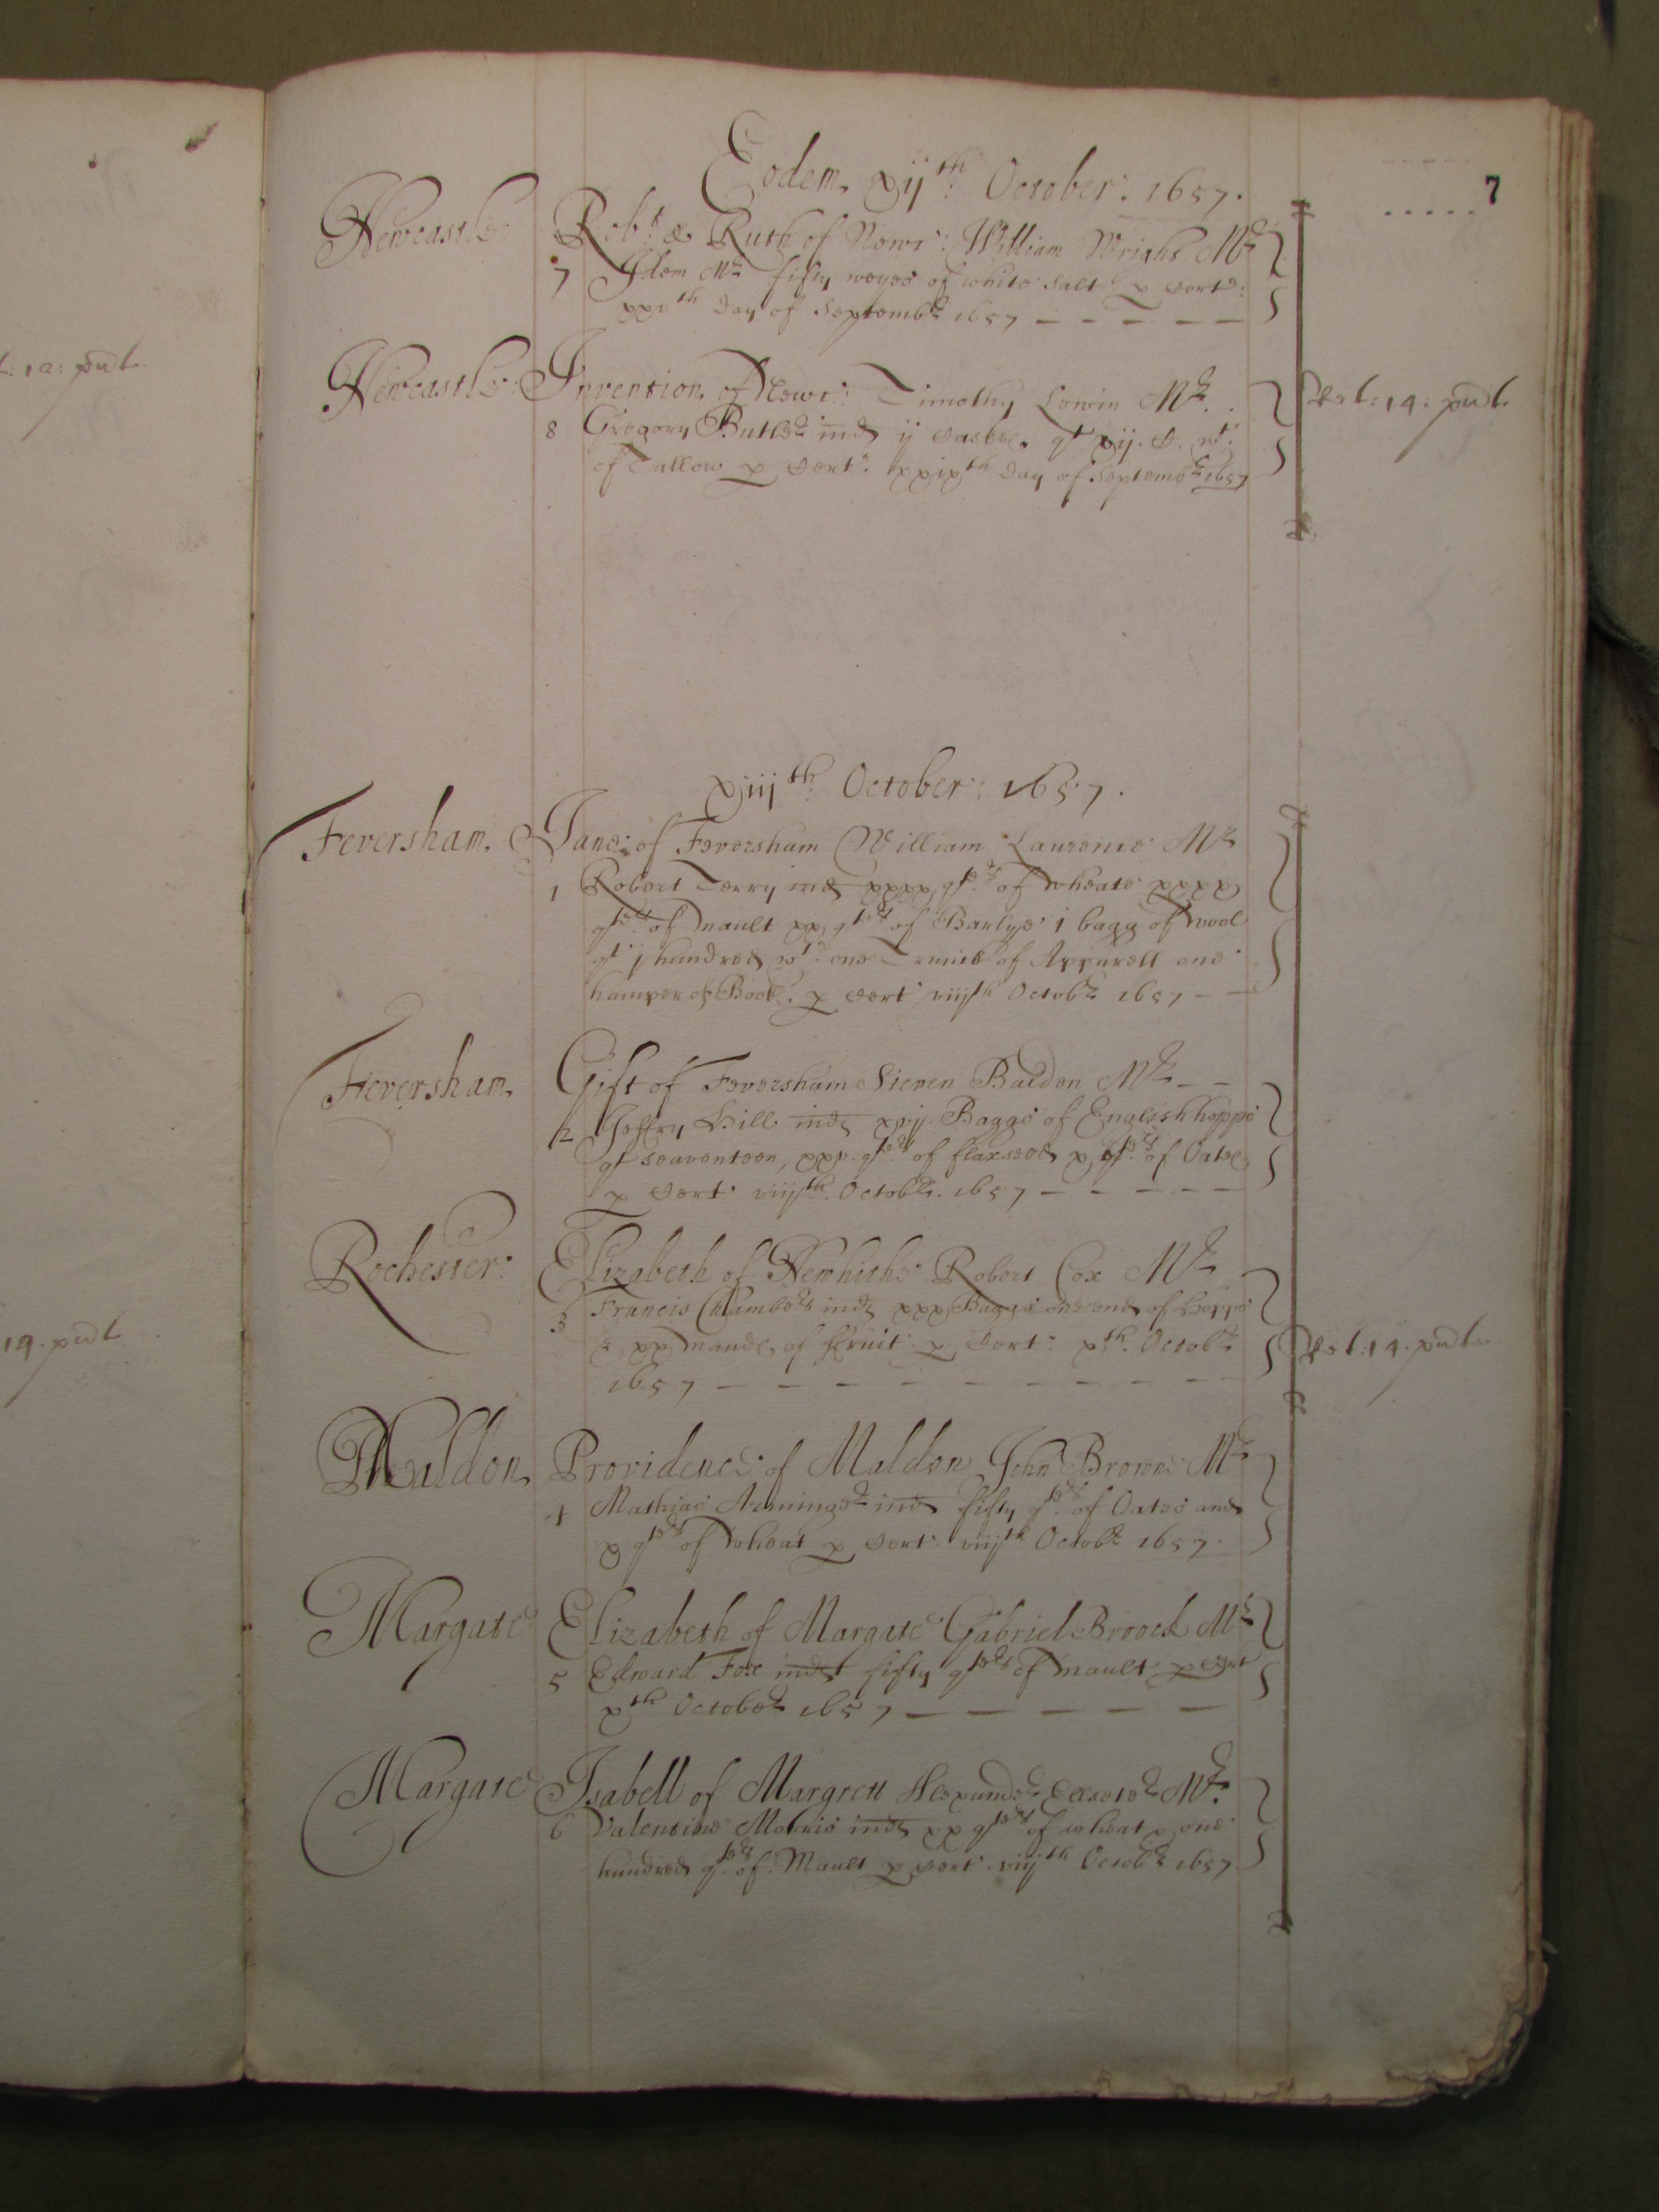 7
Eodem xijth: October: 1657.
Newcastle: Robt: & Ruth of Newc: William Wright Mr
7 Idem Mr fifty weyes of white salt p Cert:
xxvth day of Septembr 1657
Newcastle: Invention of Newc: Timothy Lowin Mr.
8 Gregory Butler ind ij Caskes qt xij. C. wt:
of Tallow p Cert: xxixth day of Septembr 1657
xiijth: October: 1657.
Feversham. Jane: of Feversham William Laurence Mr
1 Robert Terry ind xxxx qters of wheate xxxx
qters of mault xx qters of Barlye j bagg of wool
qt j hundred wt: one Trunke of Apparell one
hamper of Bookes. p Cert viijth Octobr 1657
Feversham. Gift of Feversham Steven Baldon Mr
2 Jeffry Hill ind xvij. Baggs of English hopps
qt seaventeen, xxx. qters of flaxseed x qters of Oates
p Cert viijth. Octobr. 1657
Rochester: Elizabeth of Newhithe Robert Cox Mr
3 Francis Chambers ind xxx Baggs one end of hopps
& xx maundes of ffruit p Cert: xth. Octobr
1657
ret: 14. pd
Maldon Providence of Maldon John Browne Mr
4 Mathias Arminger ind fifty qters of Oates and
x qters of wheat p Cert. viijth Octobr 1657.
Margate Elizabeth of Margate Gabriel Broock Mr
5 Edward Fox ind fifty qters of mault p Cert
xth October 1657
Margate Isabell of Margrett Mr.
6 Valentine Morris ind xx qters of wheat & one
hundred qters of. Mault p Cert. viijth Octobr 1657.